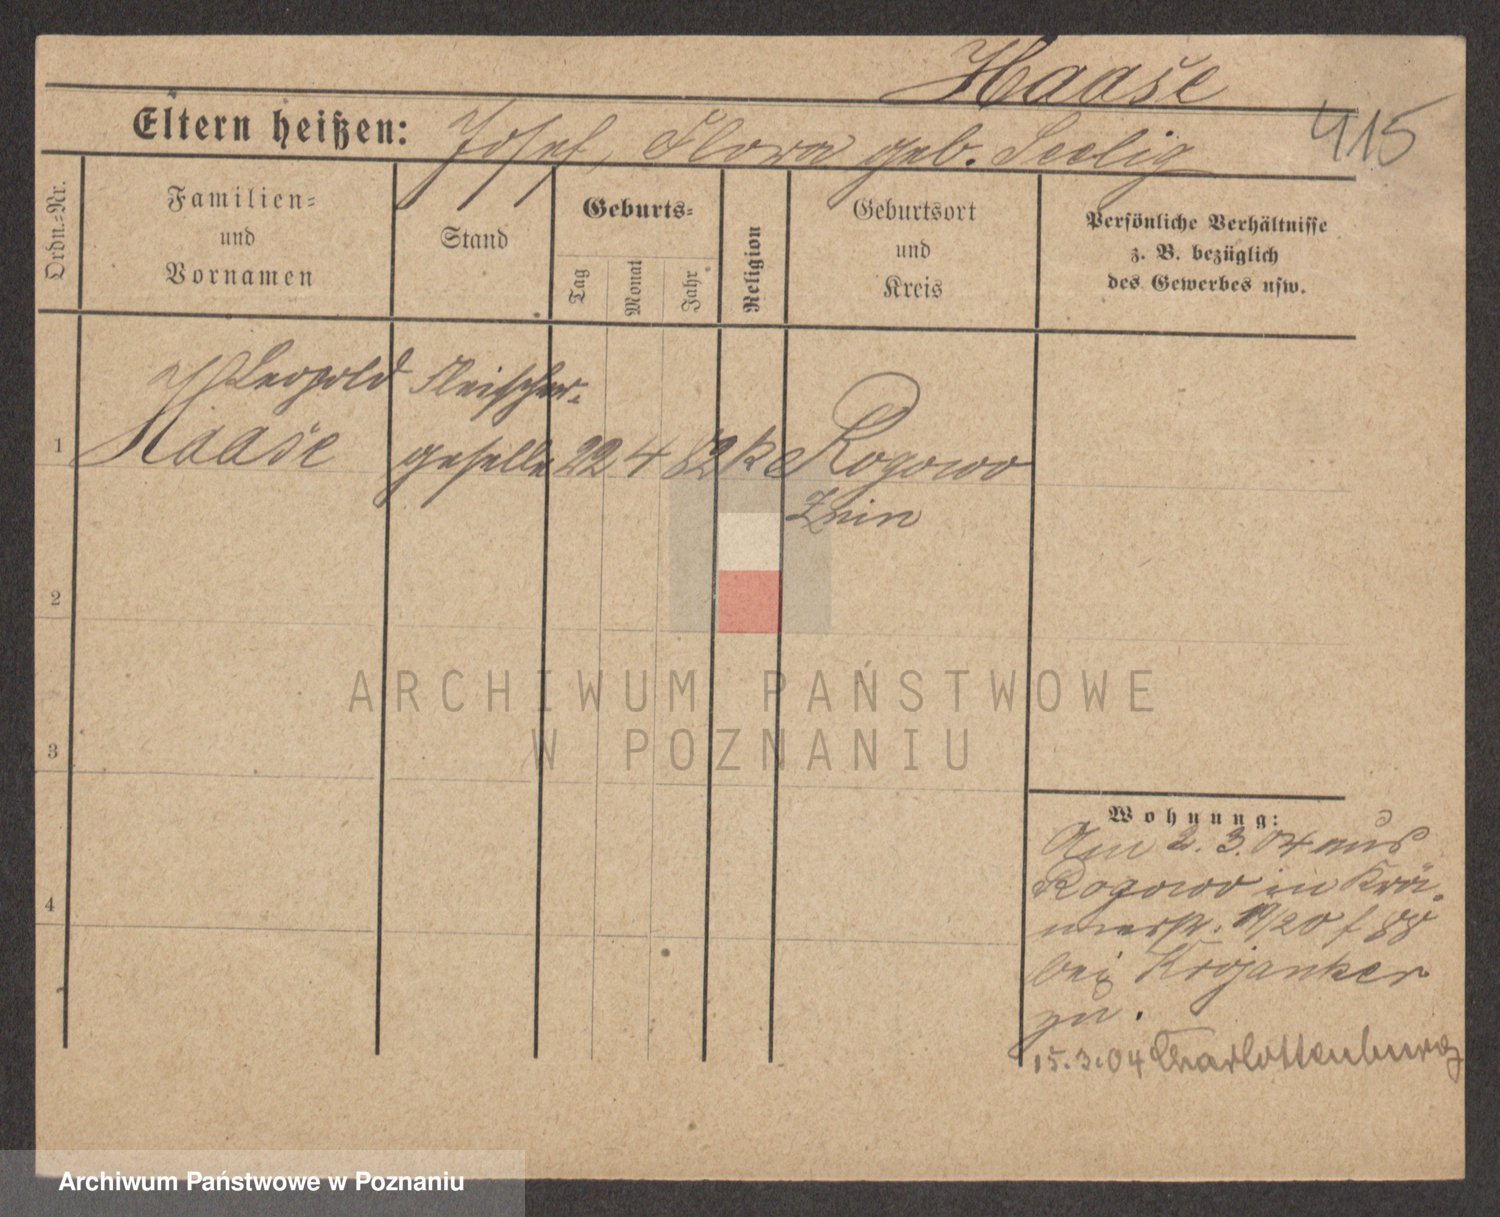 Haase
415
Eltern heißen: Josef, Flora geb. Seelig
Ordn.=Nr.
Familien=
und
Vornamen
Stand
Geburts=
Tag
Monat
Jahr
Religion
Geburtsort
und
Kreis
Persönliche Verhältnisse
z. B. bezüglich
des Gewerbes usw.
Leopold Fleischer-
1 Haase geselle 22 4 82 Rogowo
Znin
2
ARCHIWUM PAŃSTWOWE
W POZNANIU
3
4
Wohnung:
Am 2. 3. 04 aus
Rogowo in Krä-
merstr. 19/20 f
bei Krojanker
zu.
15.3.04 Charlottenburg
Archiwum Państwowe w Poznaniu